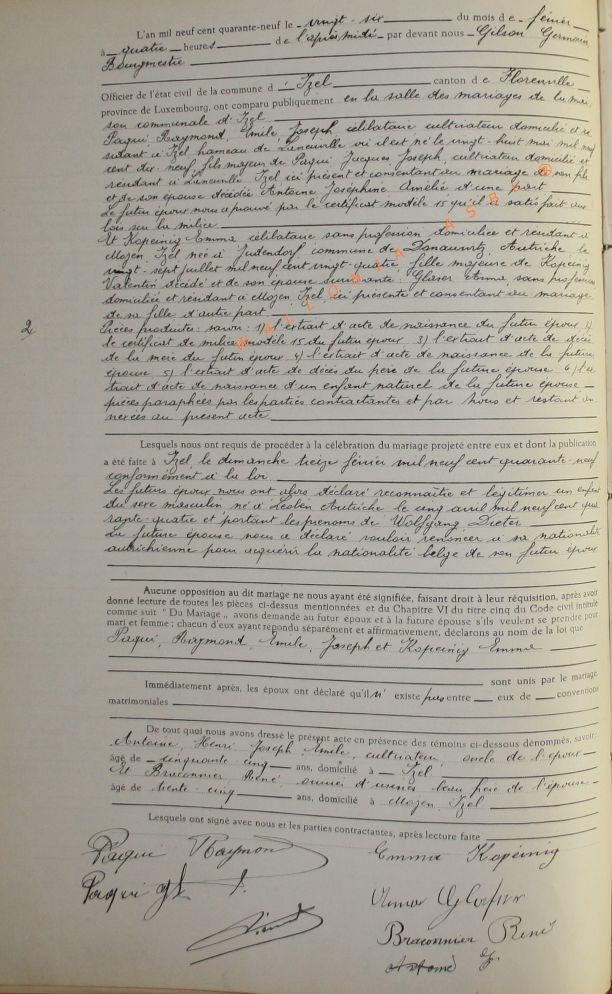 L'an mil neuf cent quarante-neuf le vingt-six du mois de février
à quatre heures de l'après midi par devant nous Gilson Germain
Bourgmestre
Officier de l'état civil de la commune d' Izel canton de Florenville
province de Luxembourg, ont comparu publiquement en la salle des mariages de la mai
son communale d'Izel
Paqui Raymond, Emile, Joseph, célibataire cultivateur domicilié et ré
sidant à Izel hameau de Laneuville où il est né le vingt-huit mai mil neuf
cent dix-neuf, fils majeur de Paqui Jacques Joseph, cultivateur domicilié et
résidant à Laneuville Izel ici présent et consentant au mariage de son fils
et de son épouse décédée Antoine Joséphine Amélie d'une part
Le futur époux nous a prouvé par le certificat modèle 15 qu'il a satisfait aux
lois sur la milice
Et Kopeinig Emma, célibataire sans profession domiciliée et résidant à
Moyen, Izel née à Judendorf commune de Donawitz, Autriche le
vingt-sept juillet mil neuf cent vingt-quatre, fille majeure de Kopeinig
Valentin décédé et de son épouse survivante: Glaser Anna, sans profession
domiciliée et résidant à Moyen, Izel, ici présente et consentant au mariage
de sa fille d'autre part
2
Pièces produites: savoir: 1) l'extrait d'acte de naissance du futur époux 2)
le certificat de milice modèle 15 du futur époux 3) l'extrait d'acte de décès
de la mère du futur époux 4) l'extrait d'acte de naissance de la future
épouse 5) l'extrait d'acte de décès du père de la future épouse 6) l'ex
trait d'acte de naissance d'un enfant naturel de la future épouse
pièces paraphées par les parties contractantes et par nous et restant an
nexées au présent acte
Lesquels nous ont requis de procéder à la célébration du mariage projeté entre eux et dont la publication
a été faite à Izel, le dimanche treize février mil neuf cent quarante-neuf
conformément à la loi
Les futurs époux nous ont alors déclaré reconnaître et légitimer un enfant
du sexe masculin né à Leoben Autriche le cinq avril mil neuf cent qua
rante-quatre et portant les prénoms de Wolfgang Dieter
La future épouse nous a déclaré vouloir renoncer à sa nationalité
autrichienne pour acquérir la nationalité belge de son futur époux
Aucune opposition au dit mariage ne nous ayant été signifiée, faisant droit à leur réquisition, après avoir
donné lecture de toutes les pièces ci-dessus mentionnées et du Chapitre VI du titre cinq du Code civil intitulé
comme suit " Du Mariage „ avons demandé au futur époux et à la future épouse s'ils veulent se prendre pour
mari et femme ; chacun d'eux ayant répondu séparément et affirmativement, déclarons au nom de la loi que
Paqui, Raymond, Emile, Joseph et Kopeinig Emma
sont unis par le mariage.
Immédiatement après, les époux ont déclaré qu'il n' existe pas entre eux de conventions
matrimoniales
De tout quoi nous avons dressé le présent acte en présence des témoins ci-dessous dénommés, savoir:
Antoine, Henri, Joseph, Emile, cultivateur, oncle de l'époux
âgé de cinquante cinq ans, domicilié à Izel
Et Braconnier, René, ouvrier d'usines, beau frère de l'épouse
âgé de trente cinq ans, domicilié à Moyen, Izel
Lesquels ont signé avec nous et les parties contractantes, après lecture faite
Paqui Raymond
Emma Kopeinig
Paqui
Anna Glaser
Braconnier René
Antoine